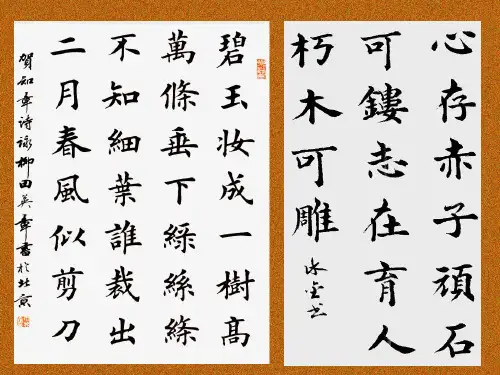 碧玉妆成一樹高
萬條垂下綠絲絛
不知細葉誰裁出
二月春風似剪刀
賀知章詩詠柳田英章書於北京
心存赤子頑石
可鏤志在育人
朽木可雕